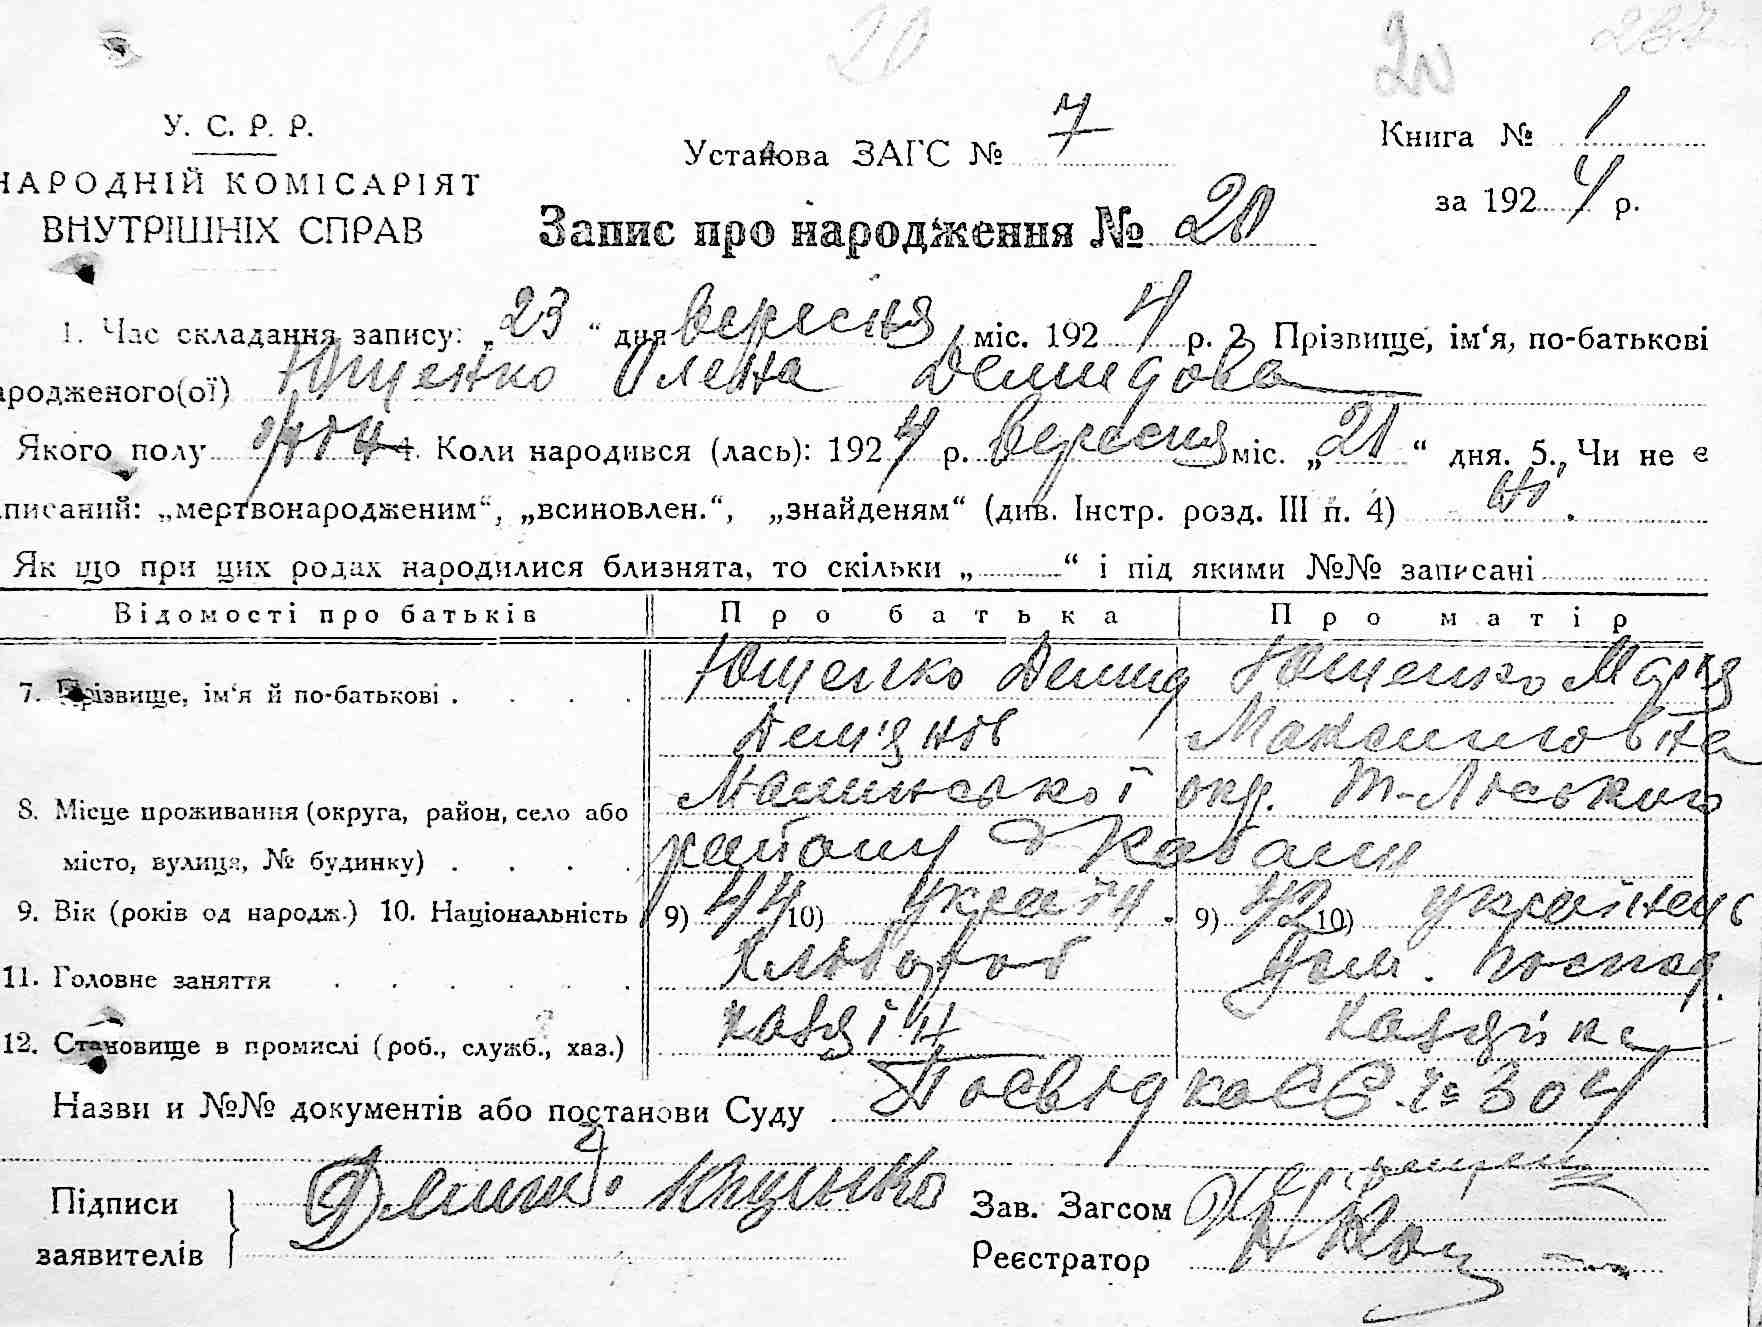 20
20
237
У. С. Р. Р.
Установа ЗАГС № 7
Книга № 1
НАРОДНІЙ КОМІСАРІЯТ
за 1924 р.
ВНУТРІШНІХ СПРАВ
Запис про народження № 20
1. Час складання запису: „23“ дня вересня міс. 1924 р. 2. Прізвище, ім‘я, по-батькові
ародженого(ої) Ющенко Олена Демидова
Якого полу 4. Коли народився (лась): 1924 р. вересня міс. „21“ дня. 5. Чи не є
писаний: „мертвонародженим“, „всиновлен.“, „знайденям“ (див. Інстр. розд. III п. 4) ні.
Як що при цих родах народилися близнята, то скільки „ “ і під якими №№ записані
Відомості про батьків Про батька Про матір
7. Прізвище, ім‘я й по-батькові . . . . Ющенко Демид Ющенко Марія
Дем'янів Максимовна
8. Місце проживання (округа, район, село або Малинської окр.
місто, вулиця, № будинку) . . . . району
9. Вік (років од народж.) 10. Національність 9) 44 10) україн. 9) 42 10) українець
11. Головне заняття . . . . . . Хлібороб Дом. господ.
12. Становище в промислі (роб., служб., хаз.) хазяїн хазяйка
Назви и №№ документів або постанови Суду Посвідка С.С. № 304
Підписи Демид Ющенко Зав. Загсом
заявителів Реєстратор